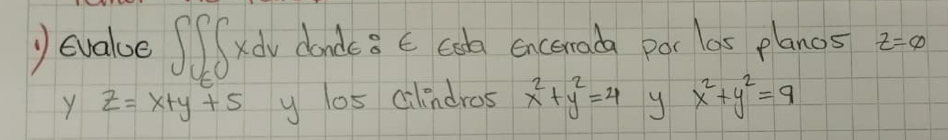 1) Evalue ∭_E xdv donde: E Esta Encerrada por los planos z=0
y z=x+y+5 y los cilindros x²+y²=4 y x²+y²=9